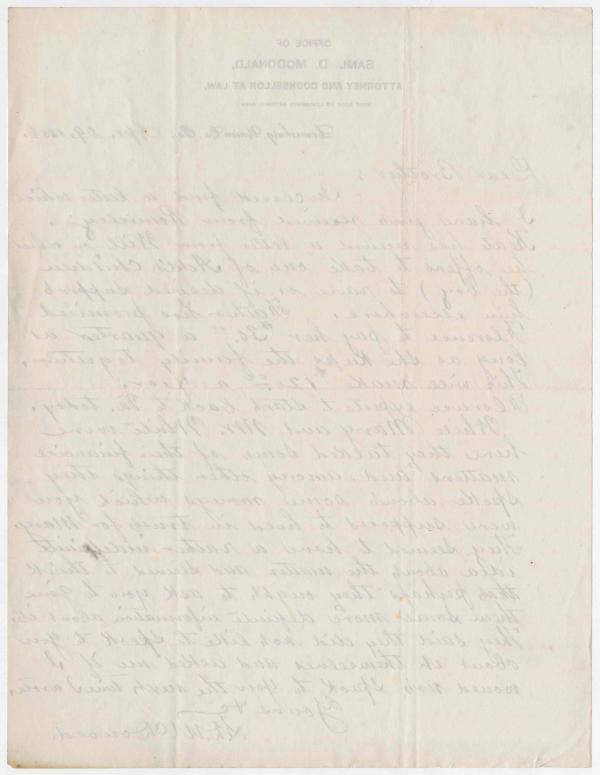 OFFICE OF
SAML. D. McDONALD,
ATTORNEY AND COUNSELLOR AT LAW,
Lewisburg Union Co. Pa. Apr. 29, 188
Dear Brother:
Enclosed find a letter which
I have just received from
Kate has received a letter from Will in which
he offers to take one of children
(the boy) to raise or if desired support
him elsewhere. Father has promised
Florence to pay her $30.00 a quarter as
long as she keeps the family together,
this will make $120 a year.
Florence expects to start back to Va. today.
While Mary and Mr. were
here they talked some of their financial
matters and among other things they
spoke about some moneys which you
were supposed to hold in trust for Mary.
They seemed to have a rather indefinite
idea about the matter and seemed to think
that perhaps they ought to ask you to give
them some more definite information about it.
They said they did not like to speak to you
about it themselves and asked me if I
would not speak to you the next time I wrote.
Yours &c